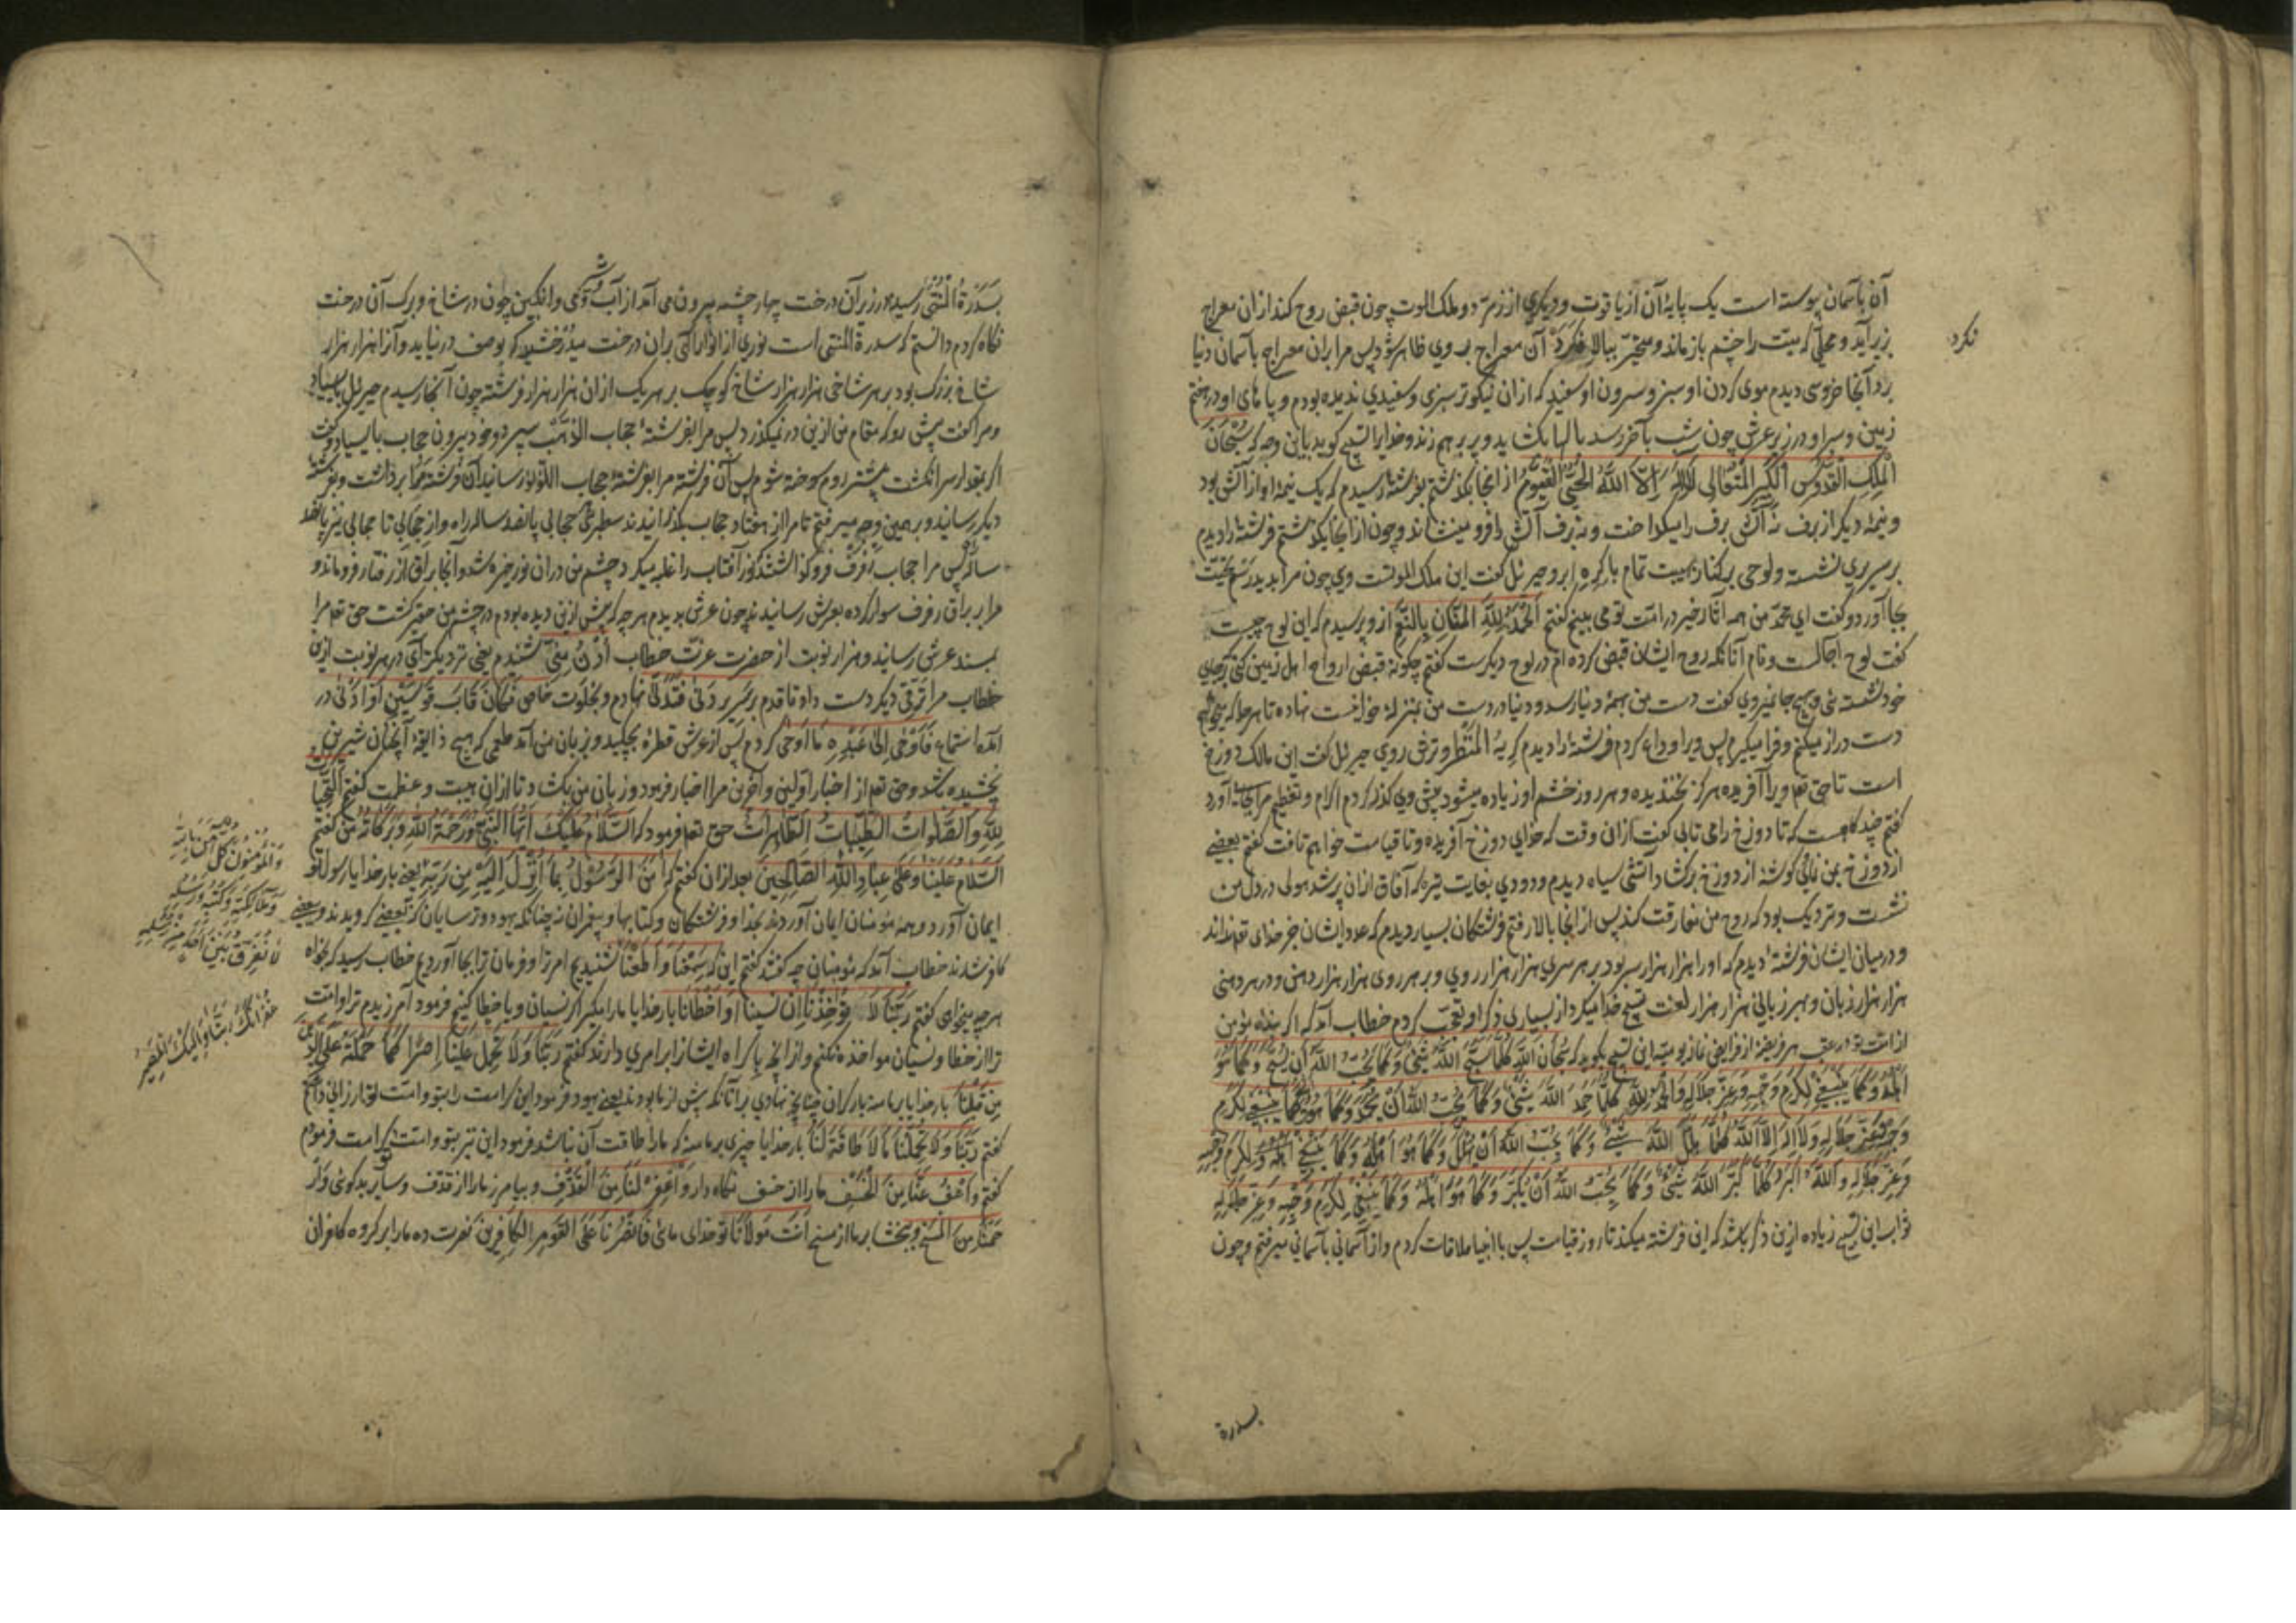 آن بآسمان پیوسته است یک پایهٔ آن از یاقوت و دیگری از زمرد و ملک الموت چون قبض روح کند ازان معراج
بزیر آید و محلی که میت را چشم باز ماند و متحیر ببالا نکرد آن معراج بر وی ظاهر شود پس مرا بران معراج بآسمان دنیا
نکرد
برد آنجا خروسی دیدم موی گردن او سبز و سر و تن او سفید که ازان نیکوتر سبزی و سفیدی ندیده بودم و پاهای او در هفتم
زمین و سر او در زیر عرش چون شب بآخر رسد بالها بکشاید و پر بر هم زند و خدایرا تسبیح گوید باین وجه که سُبْحَانَ
الْمَلِکِ الْقُدُّوسِ الْکَبِیرِ الْمُتَعَالِی لَا اِلٰهَ اِلَّا اللّٰهُ الْحَیُّ الْقَیُّومُ از آنجا بگذشتم بفرشتهٔ رسیدم که یک نیمهٔ او از آتش بود
و نیمهٔ دیگر از برف نه آتش برف را میگداخت و نه برف آتش را فرو مینشاند و چون از آنجا بگذشتم فرشتهٔ را دیدم
بر سریری نشسته و لوحی بر کنار بهیبت تمام با گره ابرو جبرئیل گفت این ملک الموتست وی چون مرا بدید رسم تحیت
بجا آورد و گفت ای محمد من همه آثار خیر در امت تو می بینم گفتم الْحَمْدُ لِلّٰهِ الْمَنَّانِ بِالنِّعَمِ ازو پرسیدم که این لوح چیست
گفت لوح آجالست و نام آنانکه روح ایشان قبض کرده ام در لوح دیگرست گفتم چگونه قبض ارواح اهل زمین کنی برجای
خود نشسته ئی و هیچ جا نمیروی گفت دست من بهمهٔ دنیا رسد و دنیا در دست من بمنزلهٔ خوانیست نهاده تا هر جا که میخواهم
دست دراز میکنم و فرا میگیرم پس ویرا وداع کردم فرشتهٔ را دیدم کَرِیهُ الْمَنْظَر و ترش روی جبرئیل گفت این مالک دوزخ
است تا حق تعه ویرا آفریده هرگز نخندیده و هر روز خشم او زیاده میشود پیش وی گذر کردم اکرام و تعظیم مرا بجا آورد
گفتم چند گاهست که تا دوزخ را می تابی گفت ازان وقت که خدای دوزخ آفریده و تا قیامت خواهم تافت گفتم بعضی
از دوزخ بمن نمائی گوشهٔ از دوزخ برکشاد آتشی سیاه دیدم و دودی بغایت تیره که آفاق ازان پر شد هولی در دل من
نشست و نزدیک بود که روح من مفارقت کند پس از آنجا بالا رفتم فرشتگان بسیار دیدم که عدد ایشان جز خدای تعه نداند
و در میان ایشان فرشتهٔ دیدم که او را هزار هزار سر بود بر هر سری هزار هزار روی و بر هر روی هزار هزار دهن و در هر دهنی
هزار هزار زبان و بهر زبانی هزار هزار لغت تسبیح خدا میکرد از بسیاری ذکر او تعجب کردم خطاب آمد که اگر بندهٔ مؤمن
از امت تو در عقب هر فریضه از فرایض نماز یومیه این تسبیح بگوید که سُبْحَانَ اللّٰهِ کُلَّمَا سَبَّحَ اللّٰهَ شَیْءٌ وَ کَمَا یُحِبُّ اللّٰهُ اَنْ یُسَبَّحَ وَ کَمَا هُوَ
اَهْلُهُ وَ کَمَا یَنْبَغِی لِکَرَمِ وَجْهِهِ وَ عِزِّ جَلَالِهِ وَ الْحَمْدُ لِلّٰهِ کُلَّمَا حَمِدَ اللّٰهَ شَیْءٌ وَ کَمَا یُحِبُّ اللّٰهُ اَنْ یُحْمَدَ وَ کَمَا هُوَ اَهْلُهُ وَ کَمَا یَنْبَغِی لِکَرَمِ
وَجْهِهِ وَ عِزِّ جَلَالِهِ وَ لَا اِلٰهَ اِلَّا اللّٰهُ کُلَّمَا هَلَّلَ اللّٰهَ شَیْءٌ وَ کَمَا یُحِبُّ اللّٰهُ اَنْ یُهَلَّلَ وَ کَمَا هُوَ اَهْلُهُ وَ کَمَا یَنْبَغِی لِکَرَمِ وَجْهِهِ
وَ عِزِّ جَلَالِهِ وَ اللّٰهُ اَکْبَرُ کُلَّمَا کَبَّرَ اللّٰهَ شَیْءٌ وَ کَمَا یُحِبُّ اللّٰهُ اَنْ یُکَبَّرَ وَ کَمَا هُوَ اَهْلُهُ وَ کَمَا یَنْبَغِی لِکَرَمِ وَجْهِهِ وَ عِزِّ جَلَالِهِ
ثواب این تسبیح زیاده ازین ذکر باشد که این فرشته میکند تا روز قیامت پس با انبیا ملاقات کردم و از آسمانی بآسمانی میرفتم و چون
بسدرة
بِسِدْرَةُ الْمُنْتَهٰی رسیدم در زیر آن درخت چهار چشمه بیرون می آمد از آب و شیر و می و انگبین چون در شاخ و برگ آن درخت
نگاه کردم دانستم که سدرة المنتهی است نوری از انوار الهی بران درخت میدرخشید که بوصف در نیاید و آنرا هزار هزار
شاخ بزرگ بود بر هر شاخی هزار هزار شاخ کوچک بر هر یک ازان هزار هزار فرشته چون آنجا رسیدم جبرئیل بایستاد
و مرا گفت پیش رو که مقام من ازین در نمیگذرد پس مرا بفرشتهٔ حجاب الذهب سپرد و خود بیرون حجاب بایستاد و گفت
اگر بمقدار سر انگشت پیشتر روم سوخته شوم پس آن فرشته مرا بفرشتهٔ حجاب اللؤلؤ رسانید آن فرشته مرا برداشت و بفرشتهٔ
دیگر رسانید و برهمین وجه میرفتم تا مرا از هفتاد حجاب بگذرانیدند سطبری هر حجابی پانصد ساله راه و از حجابی تا حجابی نیز پانصد
ساله پس مرا حجاب رفرف فرو گذاشتند که نور آفتاب را غلبه میکرد چشم من دران نور خیره شد و آنجا براق از رفتار فرو ماند و
مرا بر براق رفرف سوار کرده بعرش رسانیدند چون عرش بدیدم هر چه که پیش ازین دیده بودم در چشم من حقیر گشت حق تعه مرا
بمسند عرش رسانید و هزار نوبت از حضرت عزت خطاب اُدْنُ مِنِّی شنیدم یعنی نزدیکتر آی در هر نوبت ازین
خطاب مرا ترقی دیگر دست داد تا قدم بر سریر دَنٰی فَتَدَلّٰی نهادم و بخلوت خاص فَکَانَ قَابَ قَوْسَیْنِ اَوْ اَدْنٰی در
آمده استماع فَاَوْحٰی اِلٰی عَبْدِهِ مَا اَوْحٰی کردم پس از عرش قطرهٔ بچکید و بر زبان من آمد طعمی که هیچ ذایقهٔ آنچنان شیرین
نچشیده شد و حق تعه از اخبار اولین و آخرین مرا اخبار فرمود و زبان من بکشاد تا ازان هیبت و عظمت گفتم التَّحِیَّاتُ
لِلّٰهِ وَ الصَّلَوَاتُ الطَّیِّبَاتُ الطَّاهِرَاتُ حق تعه فرمود که السَّلَامُ عَلَیْکَ اَیُّهَا النَّبِیُّ وَ رَحْمَةُ اللّٰهِ وَ بَرَکَاتُهُ من گفتم
السَّلَامُ عَلَیْنَا وَ عَلٰی عِبَادِ اللّٰهِ الصَّالِحِینَ بعد ازان گفتم که اٰمَنَ الرَّسُولُ بِمَا اُنْزِلَ اِلَیْهِ مِنْ رَبِّهِ یعنی بار خدایا رسول تو
وَ الْمُؤْمِنُونَ کُلٌّ اٰمَنَ بِاللّٰهِ
وَ مَلَائِکَتِهِ وَ کُتُبِهِ وَ رُسُلِهِ
لَا نُفَرِّقُ بَیْنَ اَحَدٍ مِنْ رُسُلِهِ
ایمان آورد و همهٔ مؤمنان ایمان آوردند بخدا و فرشتگان و کتابها و پیغمبران نه چنانکه یهود و ترسایان که ببعضی گرویدند و ببعضی
کافر شدند خطاب آمد که مؤمنان چه گفتند گفتم این که سَمِعْنَا وَ اَطَعْنَا شنیدیم امر ترا و فرمان ترا بجا آوردیم خطاب رسید که بخواه
غُفْرَانَکَ رَبَّنَا وَ اِلَیْکَ الْمَصِیرُ
هر چه میخواهی گفتم رَبَّنَا لَا تُؤَاخِذْنَا اِنْ نَسِینَا اَوْ اَخْطَأْنَا بار خدایا ما را مگیر اگر نسیان و یا خطا کنیم فرمود آمرزیدم ترا و امت
ترا از خطا و نسیان مواخذه نکنم و از آنچه باکراه ایشانرا بر امری دارند گفتم رَبَّنَا وَ لَا تَحْمِلْ عَلَیْنَا اِصْرًا کَمَا حَمَلْتَهُ عَلَی الَّذِینَ
مِنْ قَبْلِنَا بار خدایا بر ما منه بار گران چنانچه نهادی بر آنانکه پیش از ما بودند یعنی یهود فرمود این کرامت را بتو و امت تو ارزانی داشتم
گفتم رَبَّنَا وَ لَا تُحَمِّلْنَا مَا لَا طَاقَةَ لَنَا بار خدایا چیزی بر ما منه که ما را طاقت آن نباشد فرمود این نیز بتو و امت تو کرامت فرمودم
گفتم وَ اعْفُ عَنَّا مِنَ الْخَسْفِ ما را از خسف نگاه دار وَ اغْفِرْ لَنَا مِنَ الْقَذْفِ و بیامرز ما را از قذف و سایر بدگوئی وَ ارْ
حَمْنَا مِنَ الْمَسْخِ و ببخشا بر ما از مسخ اَنْتَ مَوْلَانَا تو خدای مائی فَانْصُرْنَا عَلَی الْقَوْمِ الْکَافِرِینَ نصرت ده ما را بر گروه کافران